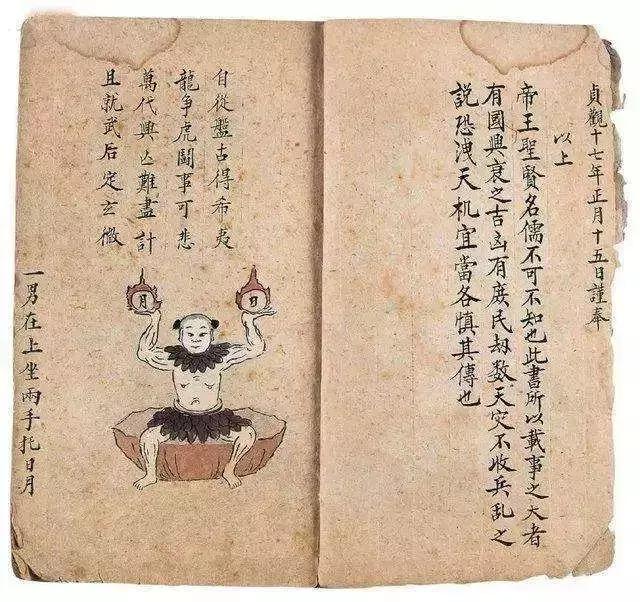 貞觀十七年正月十五日謹奉
以上
帝王聖賢名儒不可不知也此書所以載事之大者
有國興衰之吉凶有庶民劫数天灾不收兵乱之
説恐洩天机宜當各慎其傳也
自從盤古得希夷
龍争虎鬪事可悲
萬代興亡難盡計
且就武后定玄微
日
月
一男在上坐兩手托日月